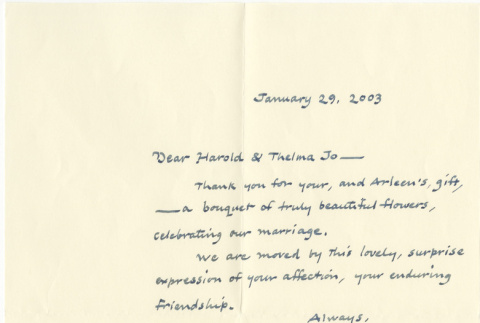 January 29, 2003
Dear Harold & Thelma Jo —
Thank you for your, and Arleen's, gift,
— a bouquet of truly beautiful flowers,
celebrating our marriage.
We are moved by this lovely, surprise
expression of your affection, your enduring
friendship.
Always,